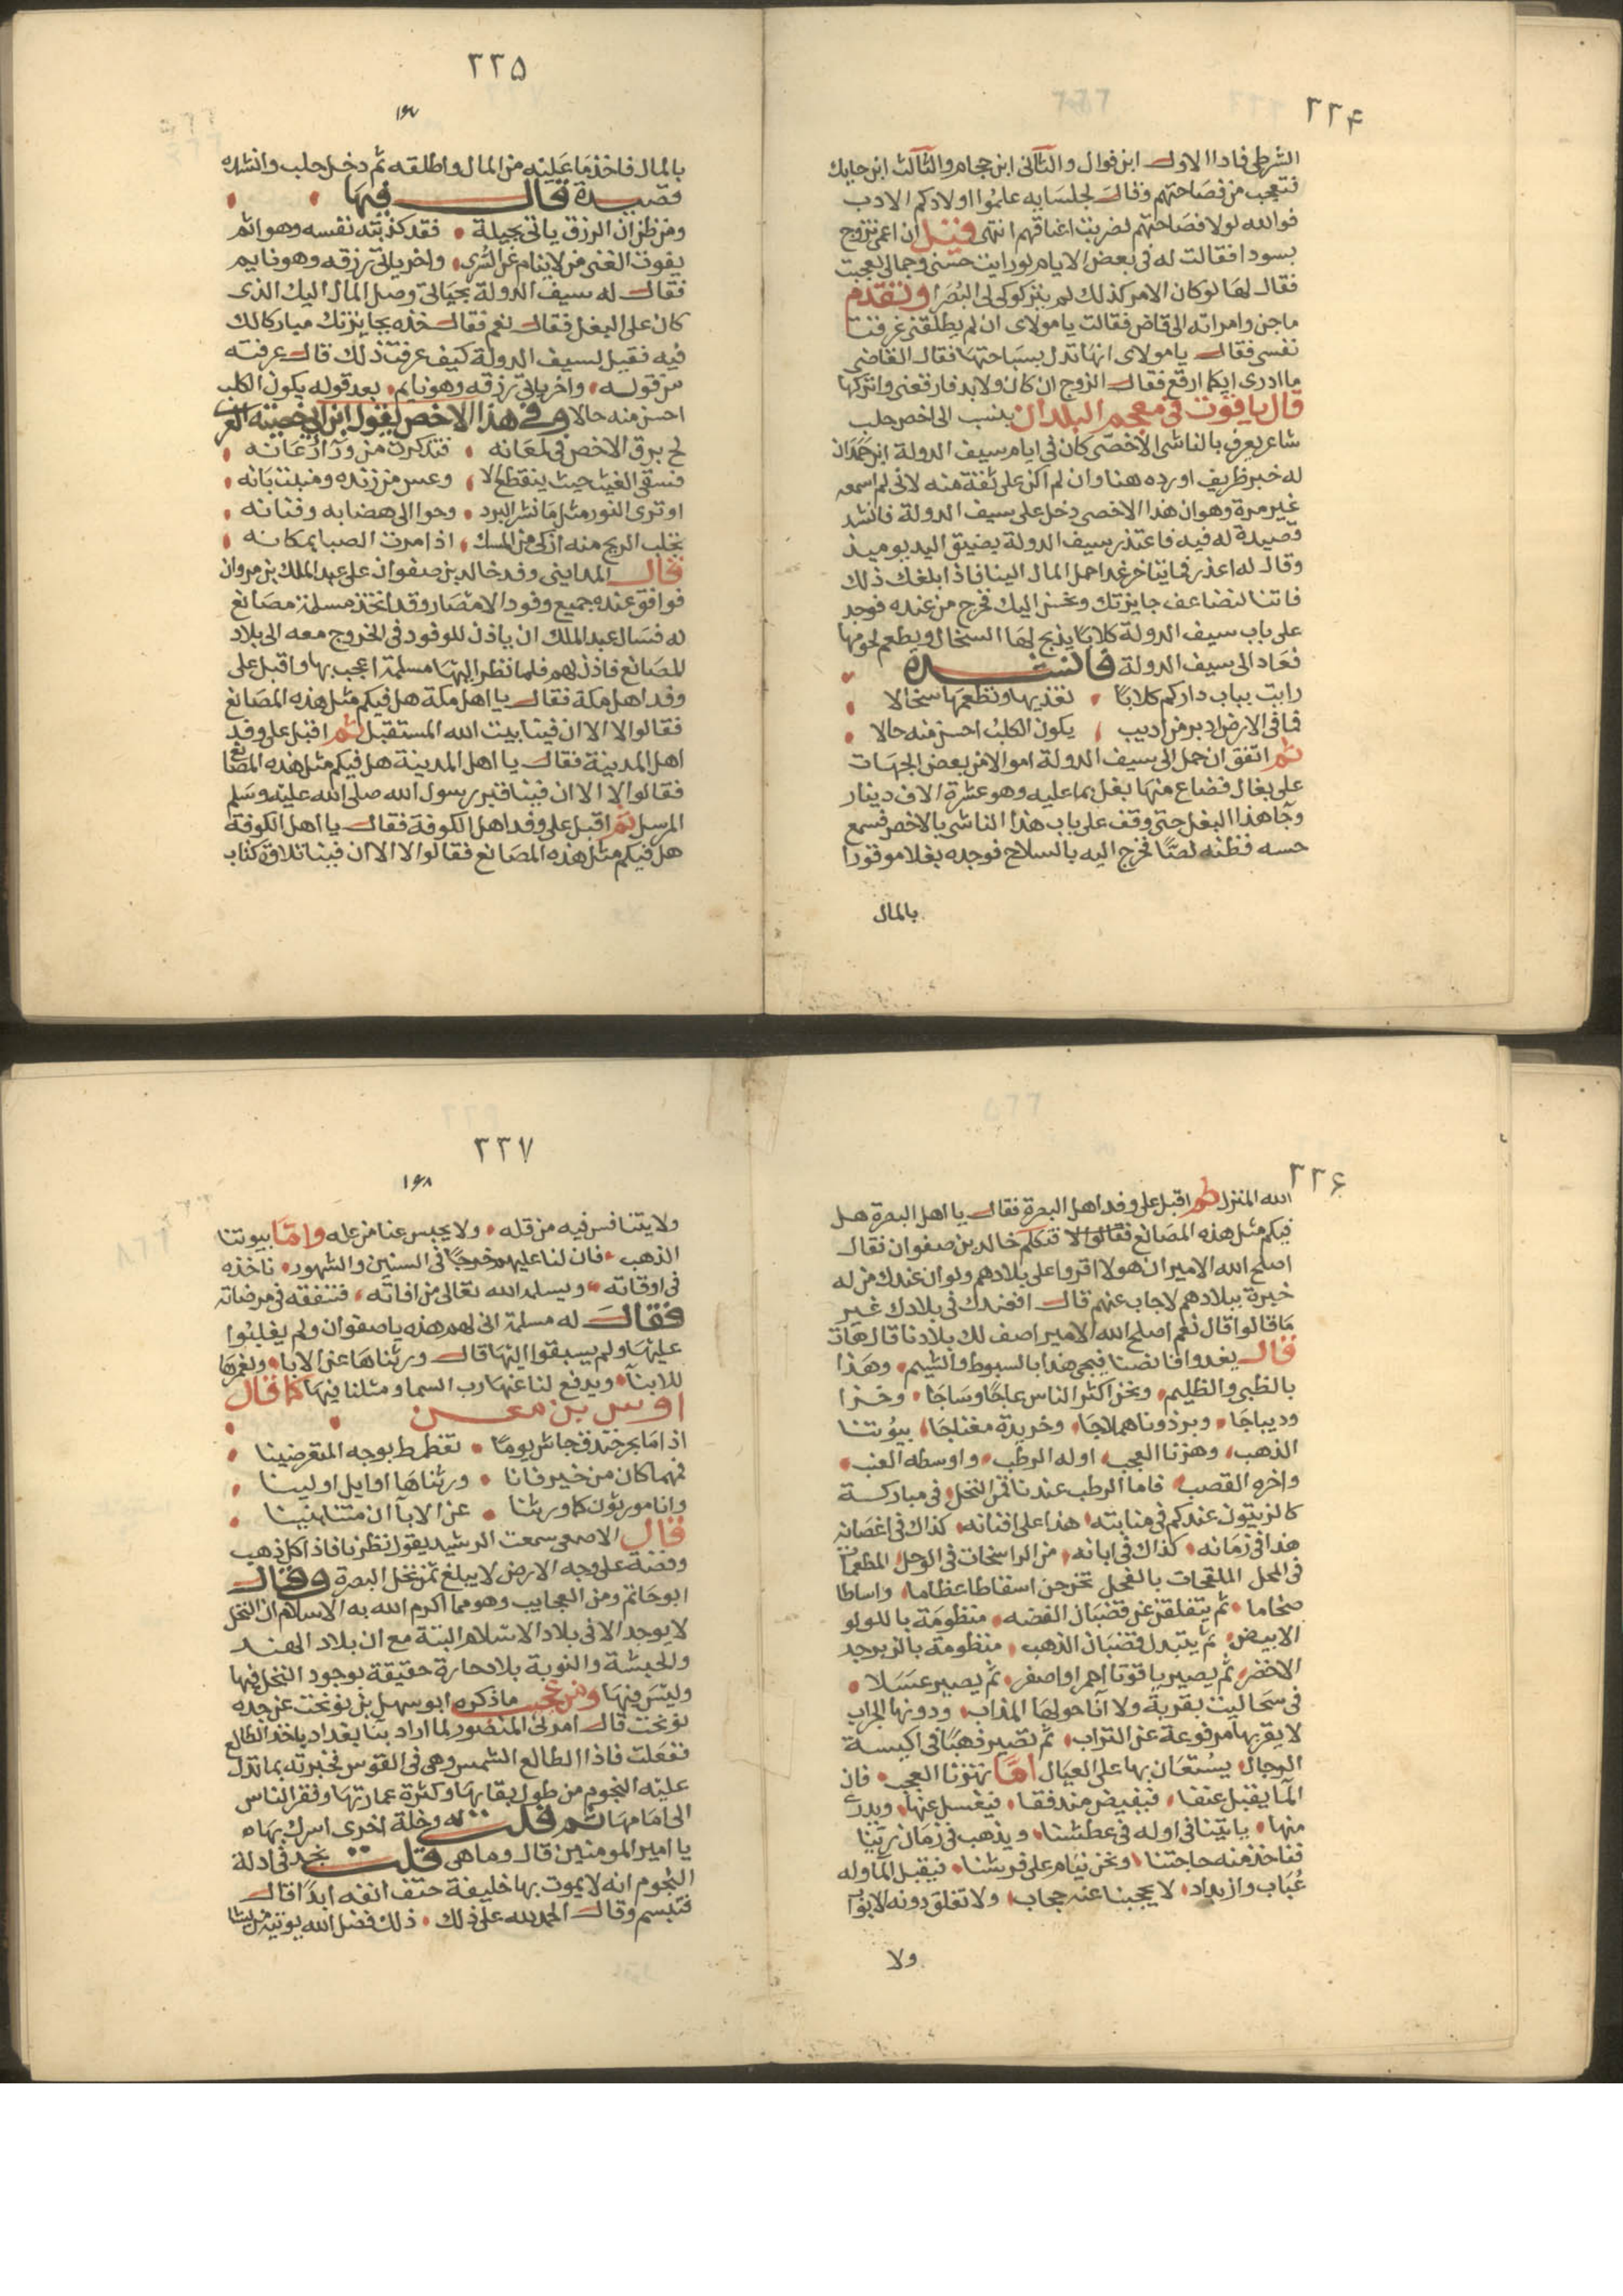 ٢٢۴
الشرطى فاذا الاول ابن فوال والثانى ابن حجام والثالث ابن حايك
فتعجب من فصاحتهم وقال لجلسايه علموا اولادكم الادب
فوالله لولا فصاحتهم لضربت اعناقهم انتهى قيل ان اعمى تزوج
بسودا فقالت له فى بعض الايام لو رايت حسنى وجمالى لعجبت
فقال لها لو كان الامر كذلك لم يتركوكى لى البصرا وتقدم
ماجن وامراته الى قاض فقالت يا مولاى ان لم يطلقنى غرقت
نفسى فقال يا مولاى انها تدل بسباحتها فقال القاضى
ما ادرى ايكما ارقع فقال الزوج ان كان ولا بد فارقعنى واتركها
قال ياقوت فى معجم البلدان ينسب الى اخص حلب
شاعر يعرف بالناشى الاخصى كان فى ايام سيف الدولة ابن حمدان
له خبر ظريف اورده هنا وان لم اكن على ثقة منه لانى لم اسمعه
غير مرة وهو ان هذا الاخصى دخل على سيف الدولة فانشد
قصيدة له فيه فاعتذر سيف الدولة بضيق اليد يوميذ
وقال له اعذر فايتاخر غدا حمل المال الينا فاذا بلغك ذلك
فاتنا لنضاعف جايزتك ونحسن اليك فخرج من عنده فوجد
على باب سيف الدولة كلابا يذبح لها السخال ويطعم لحومها
فعاد الى سيف الدولة فانشده
رايت بباب داركم كلابا ، تغذيها وتطعمها سخالا
فما فى الارض ادبر من اديب ، يكون الكلب احسن منه حالا
ثم اتفق ان حمل الى سيف الدولة اموالا من بعض الجهات
على بغال فضاع منها بغل بما عليه وهو عشرة الاف دينار
وجا هذا البغل حتى وقف على باب هذا الناشى بالاخص فسمع
حسه فظنه لصا فخرج اليه بالسلاح فوجده بغلا موقورا
بالمال
٢٢۵
١۶٧
بالمال فاخذ ما عليه من المال واطلقه ثم دخل حلب وانشده
قصيدة قال فيها
ومن ظن ان الرزق ياتى بحيلة ، فقد كذبته نفسه وهو اثم
يفوت الغنى من لا ينام عن السرى ، واخر ياتى رزقه وهو نايم
فقال له سيف الدولة بحياتى وصل المال اليك الذى
كان على البغل فقال نعم فقال خذه بجايزتك مباركا لك
فيه فقيل لسيف الدولة كيف عرفت ذلك قال عرفته
من قوله ، واخر ياتى رزقه وهو نايم ، بعد قوله يكون الكلب
احسن منه حالا وفى هذا الاخص يقول ابن ابى حصينة
لج برق الاخص فى لمعانه ، فتذكرت من ورآ رعانه
فسقى الغيث حيث ينقطع
او ترى النور مثل ما نشر البرد ، وحوالى هضابه وقنانه
تجلب الريح منه اذكى من المسك ، اذا مرت الصبا بمكانه
قال المداينى وفد خالد بن صفوان على عبد الملك بن مروان
فوافق عنده جميع وفود الامصار وقد اتخذ مسلمة مصانع
له فسال عبد الملك ان ياذن للوفود فى الخروج معه الى بلاد
المصانع فاذن لهم فلما نظر اليها مسلمة اعجب بها واقبل على
وفد اهل مكة فقال يا اهل مكة هل فيكم مثل هذه المصانع
فقالوا لا الا ان فينا بيت الله المستقبل ثم اقبل على وفد
اهل المدينة فقال يا اهل المدينة هل فيكم مثل هذه المصانع
فقالوا لا الا ان فينا قبر رسول الله صلى الله عليه وسلم
المرسل ثم اقبل على وفد اهل الكوفة فقال يا اهل الكوفة
هل فيكم مثل هذه المصانع فقالوا لا الا ان فينا تلاوة كتاب
٢٢۶
الله المنزل ثم اقبل على وفد اهل البصرة فقال يا اهل البصرة هل
فيكم مثل هذه المصانع فقالوا لا فتكلم خالد بن صفوان فقال
اصلح الله الامير ان هولا اقروا على بلادهم ولو ان عندك من له
خبرة ببلادهم لاجاب عنهم قال افعندك فى بلادك غير
ما قالوا قال نعم اصلح الله الامير اصف لك بلادنا قال هات
قال يغدوا قانصنا فيجى هذا بالسبوط والشيم ، وهذا
بالظبى والظليم ، ونحن اكثر الناس عاجا وساجا ، وخزا
وديباجا ، وبرذونا هملاجا ، وخريدة مغناجا ، بيوتنا
الذهب ، وهزنا العجب ، اوله الرطب ، واوسطه العنب ،
واخره القصب ، فاما الرطب عندنا فمن النخل ، فى مباركـة
كالزيتون عندكم فى منابته ، هذا على افنانه ، كذاك فى اغصانه
هذا فى زمانه ، كذاك فى ابانه ، من الراسخات فى الوحل المطعمات
فى المحل الملقحات بالفحل تخرجن اسقاطا عظاما ، واساطا
ضخاما ، ثم يتفلقن عن قضبان الفضه ، منظومة باللولو
الابيض ، ثم يتبدل قضبان الذهب ، منظومة بالزبرجد
الاخضر ، ثم يصير ياقوتا احمر او اصفر ، ثم يصير عسلا ،
فى سحا ليت بقربة ولا انا حولها المذاب ، ودونها الجراب
لا يقربها مرفوعة عن التراب ، ثم تصير ذهبا فى اكيسة
الرجال ، يستعان بها على العيال اما نهرنا العجب ، فان
المآ يقبل عنقا ، فيفيض مندفقا ، فيغسل
منها ، ياتينا فى اوله فى عطشنا ، ويذهب فى زمان رينا
فناخذ منه حاجتنا ، ونحن نيام على فرشنا ، فيقبل المآ وله
عباب وازبداد ، لا يحجبنا عنه حجاب ، ولا تغلق دونه الابواب
ولا
٢٢٧
١۶٨
ولا يتنافس فيه من قله ، ولا يحبس عنا من عله واما بيوتنا
الذهب ، فان لنا عليهم خرجا فى السنين والشهور ، ناخذه
فى اوقاته ، ويسلمه الله تعالى من افاته ، فننفقه فى مرضاته
فقال له مسلمة انى لهم هذه يا صفوان ولم يغلبوا
عليها ولم يسبقوا اليها قال ورثناها عن الابا ، ونعمرها
للابنآ ، ويدفع لنا عنها رب السما ومثلنا فيها كما قال
اوس بن معن
اذا ما بحر خندف جاش يوما ، تغطمط بوجه المتعرضينا
فمهما كان من خير فانا ، ورثناها اوايل اولينا
وانا مورثون كما ورثنا ، عن الابآ ان متنا بنينا
قال الاصمعى سمعت الرشيد يقول نظرنا فاذا كل ذهب
وفضة على وجه الارض لا يبلغ ثمن نخل البصرة وقال
ابو حاتم ومن العجايب وهو مما اكرم الله به الاسلام ان النخل
لا يوجد الا فى بلاد الاسلام البتة مع ان بلاد الهند
والحبشة والنوبة بلاد حارة حقيقة بوجود النخل فيها
وليس فيها ومن عجيب ما ذكره ابو سهل بن نوبخت عن جده
نوبخت قال امرنى المنصور لما اراد بنا بغداد باخذ الطالع
ففعلت فاذا الطالع الشمس وهى فى القوس فخبرته بما تدل
عليه النجوم من طول بقايها وكثرة عمارتها وفقر الناس
الى ما فيها ثم قلت له وخلة اخرى اسرك بها
يا امير المومنين قال وما هى قلت نجد فى ادلة
النجوم انه لا يموت بها خليفة حتف انفه ابدا قال
فتبسم وقال الحمد لله على ذلك ، ذلك فضل الله يوتيه من يشا